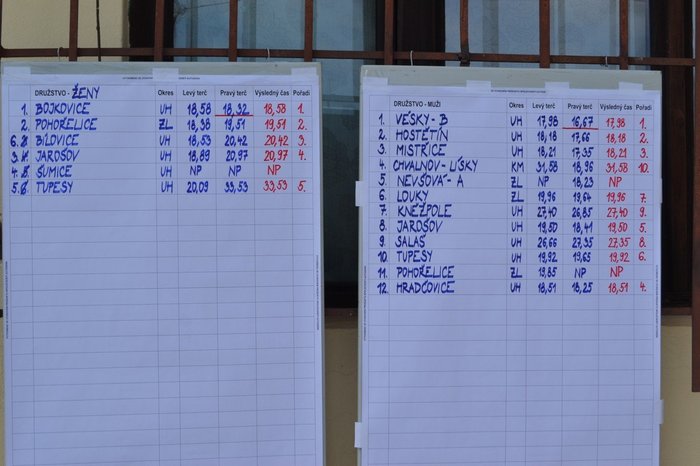 DRUŽSTVO - ŽENY Okres Levý terč Pravý terč Výsledný čas Pořadí
1. BOJKOVICE UH 18,58 18,32 18,58 1.
2. POHOŘELICE ZL 18,38 19,51 19,51 2.
6. BÍLOVICE UH 18,53 20,42 20,42 3.
3. JAROŠOV UH 18,89 20,97 20,97 4.
4. ŠUMICE UH NP NP NP
5. TUPESY UH 20,09 33,53 33,53 5.
DRUŽSTVO - MUŽI Okres Levý terč Pravý terč Výsledný čas Pořadí
1. VÉSKY - B UH 17,98 16,67 17,98 1.
2. HOSTĚTÍN UH 18,18 17,68 18,18 2.
3. MISTŘICE UH 18,21 17,35 18,21 3.
4. CHVALNOV - LÍSKY KM 31,58 18,96 31,58 10.
5. NEVŠOVÁ - A ZL NP 18,23 NP
6. LOUKY ZL 19,96 19,64 19,96 7.
7. KNĚŽPOLE UH 27,40 26,85 27,40 9.
8. JAROŠOV UH 19,50 18,41 19,50 5.
9. SALAŠ UH 26,66 27,35 27,35 8.
10. TUPESY UH 19,92 19,65 19,92 6.
11. POHOŘELICE ZL 19,85 NP NP
12. HRADČOVICE UH 18,51 18,25 18,51 4.